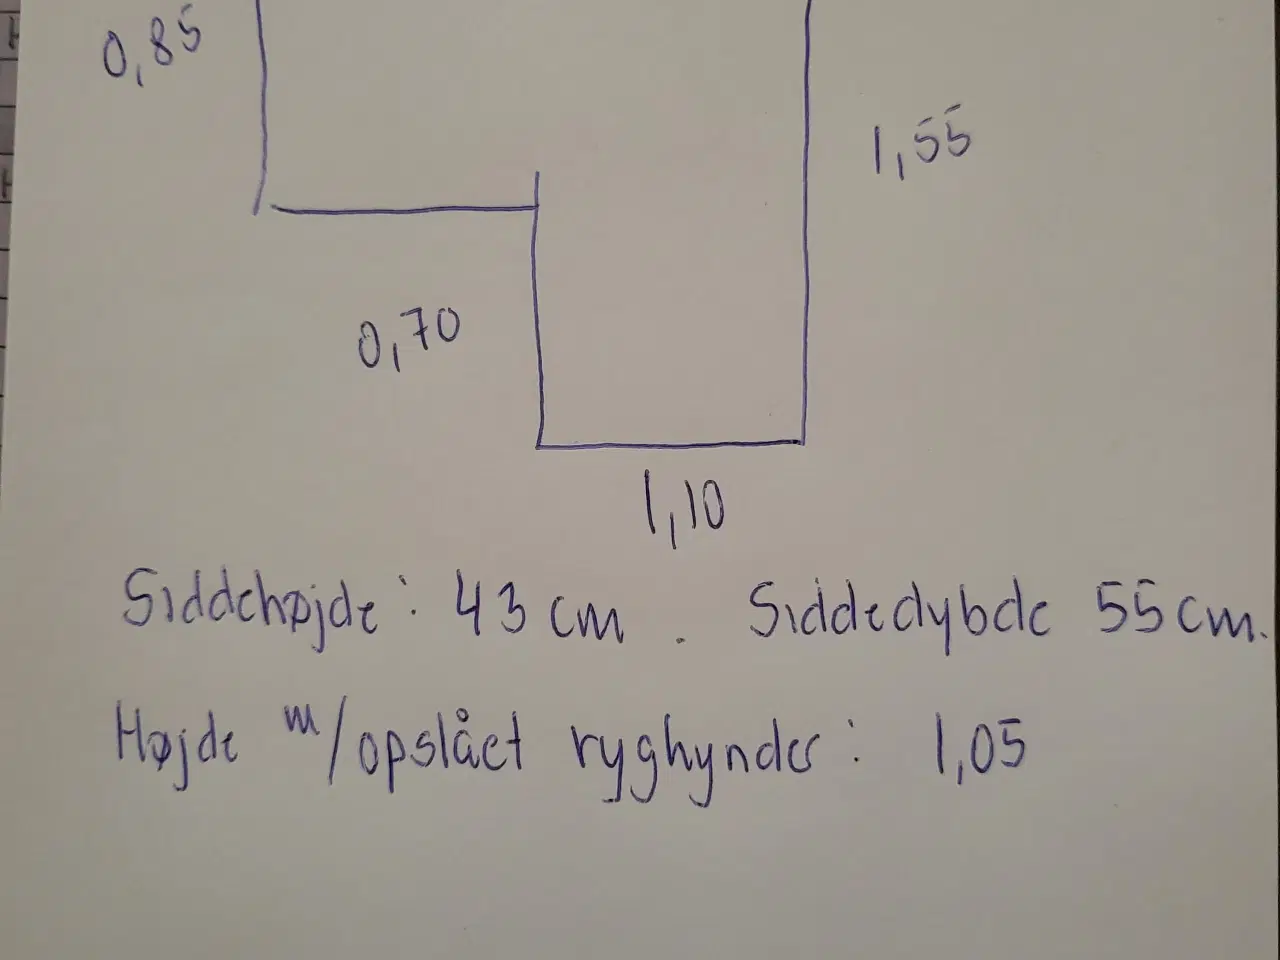 0,85
1,55
0,70
1,10
Siddehøjde: 43 cm. Siddedybde 55 cm.
Højde m/opslået ryghynder: 1,05